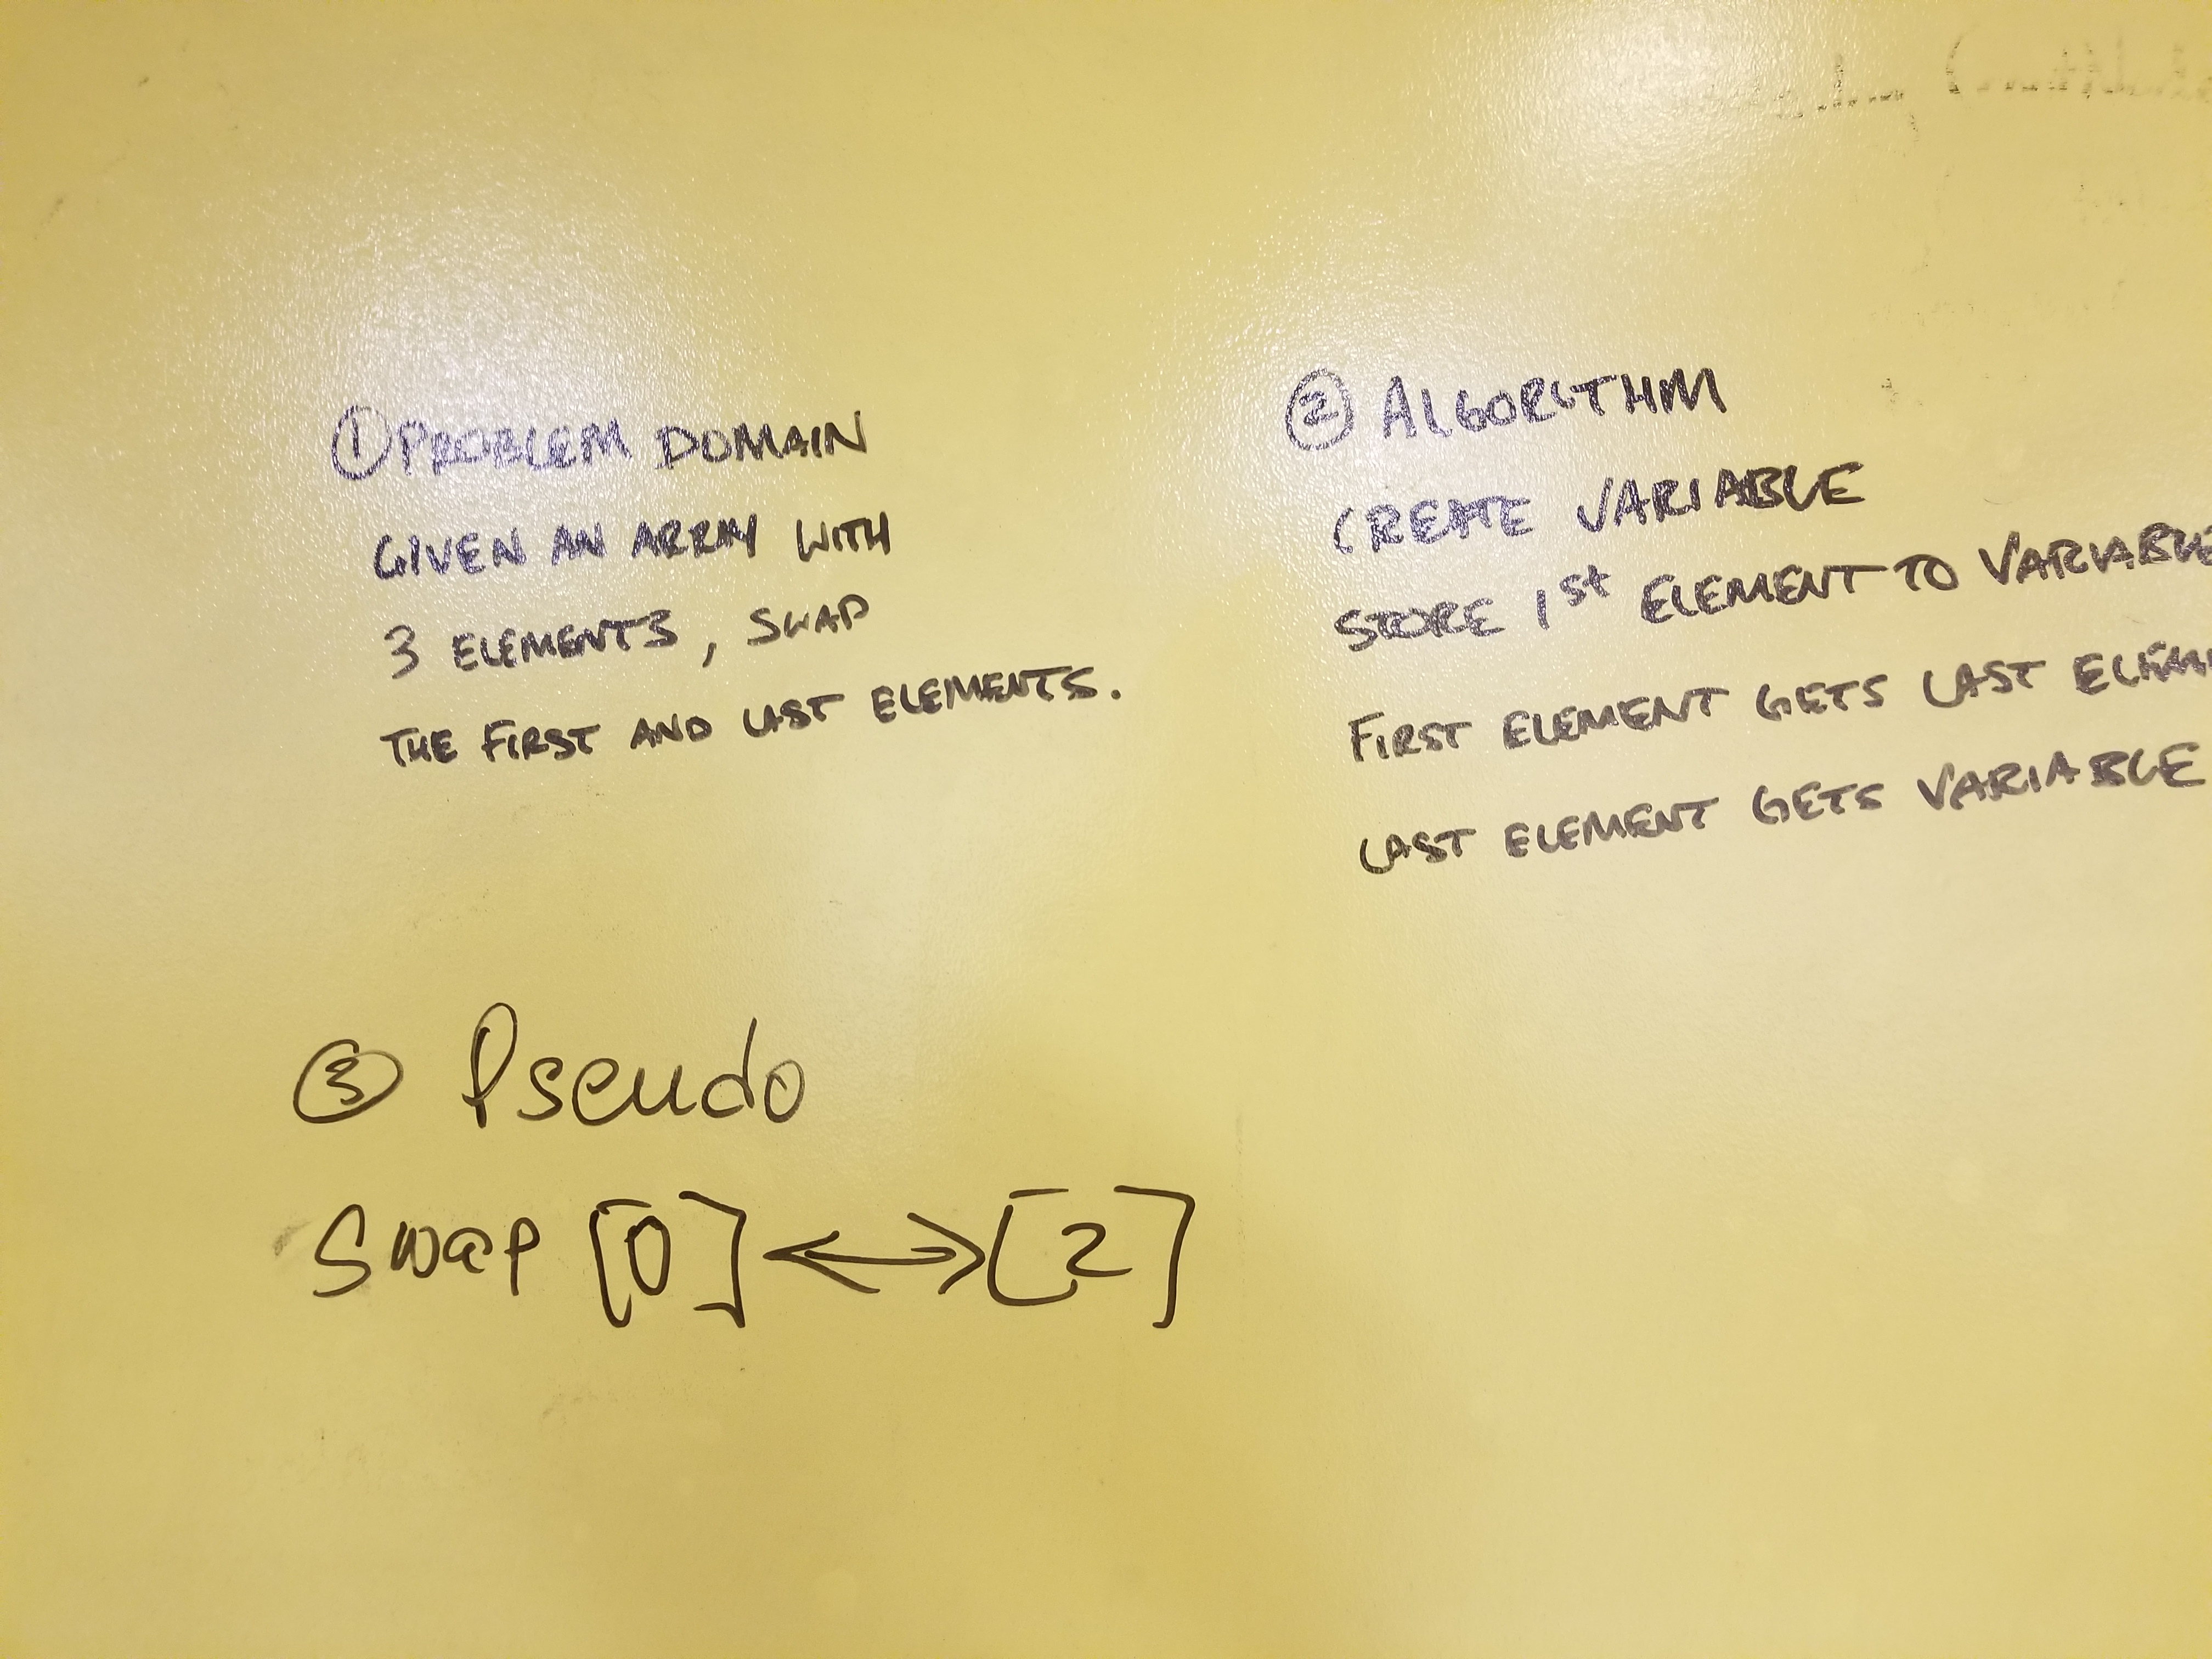 ① PROBLEM DOMAIN
GIVEN AN ARRAY WITH
3 ELEMENTS, SWAP
THE FIRST AND LAST ELEMENTS.
② ALGORITHM
CREATE VARIABLE
STORE 1st ELEMENT TO VARIABLE
FIRST ELEMENT GETS LAST
LAST ELEMENT GETS VARIABLE
③ Pseudo
Swap [0] <-> [2]